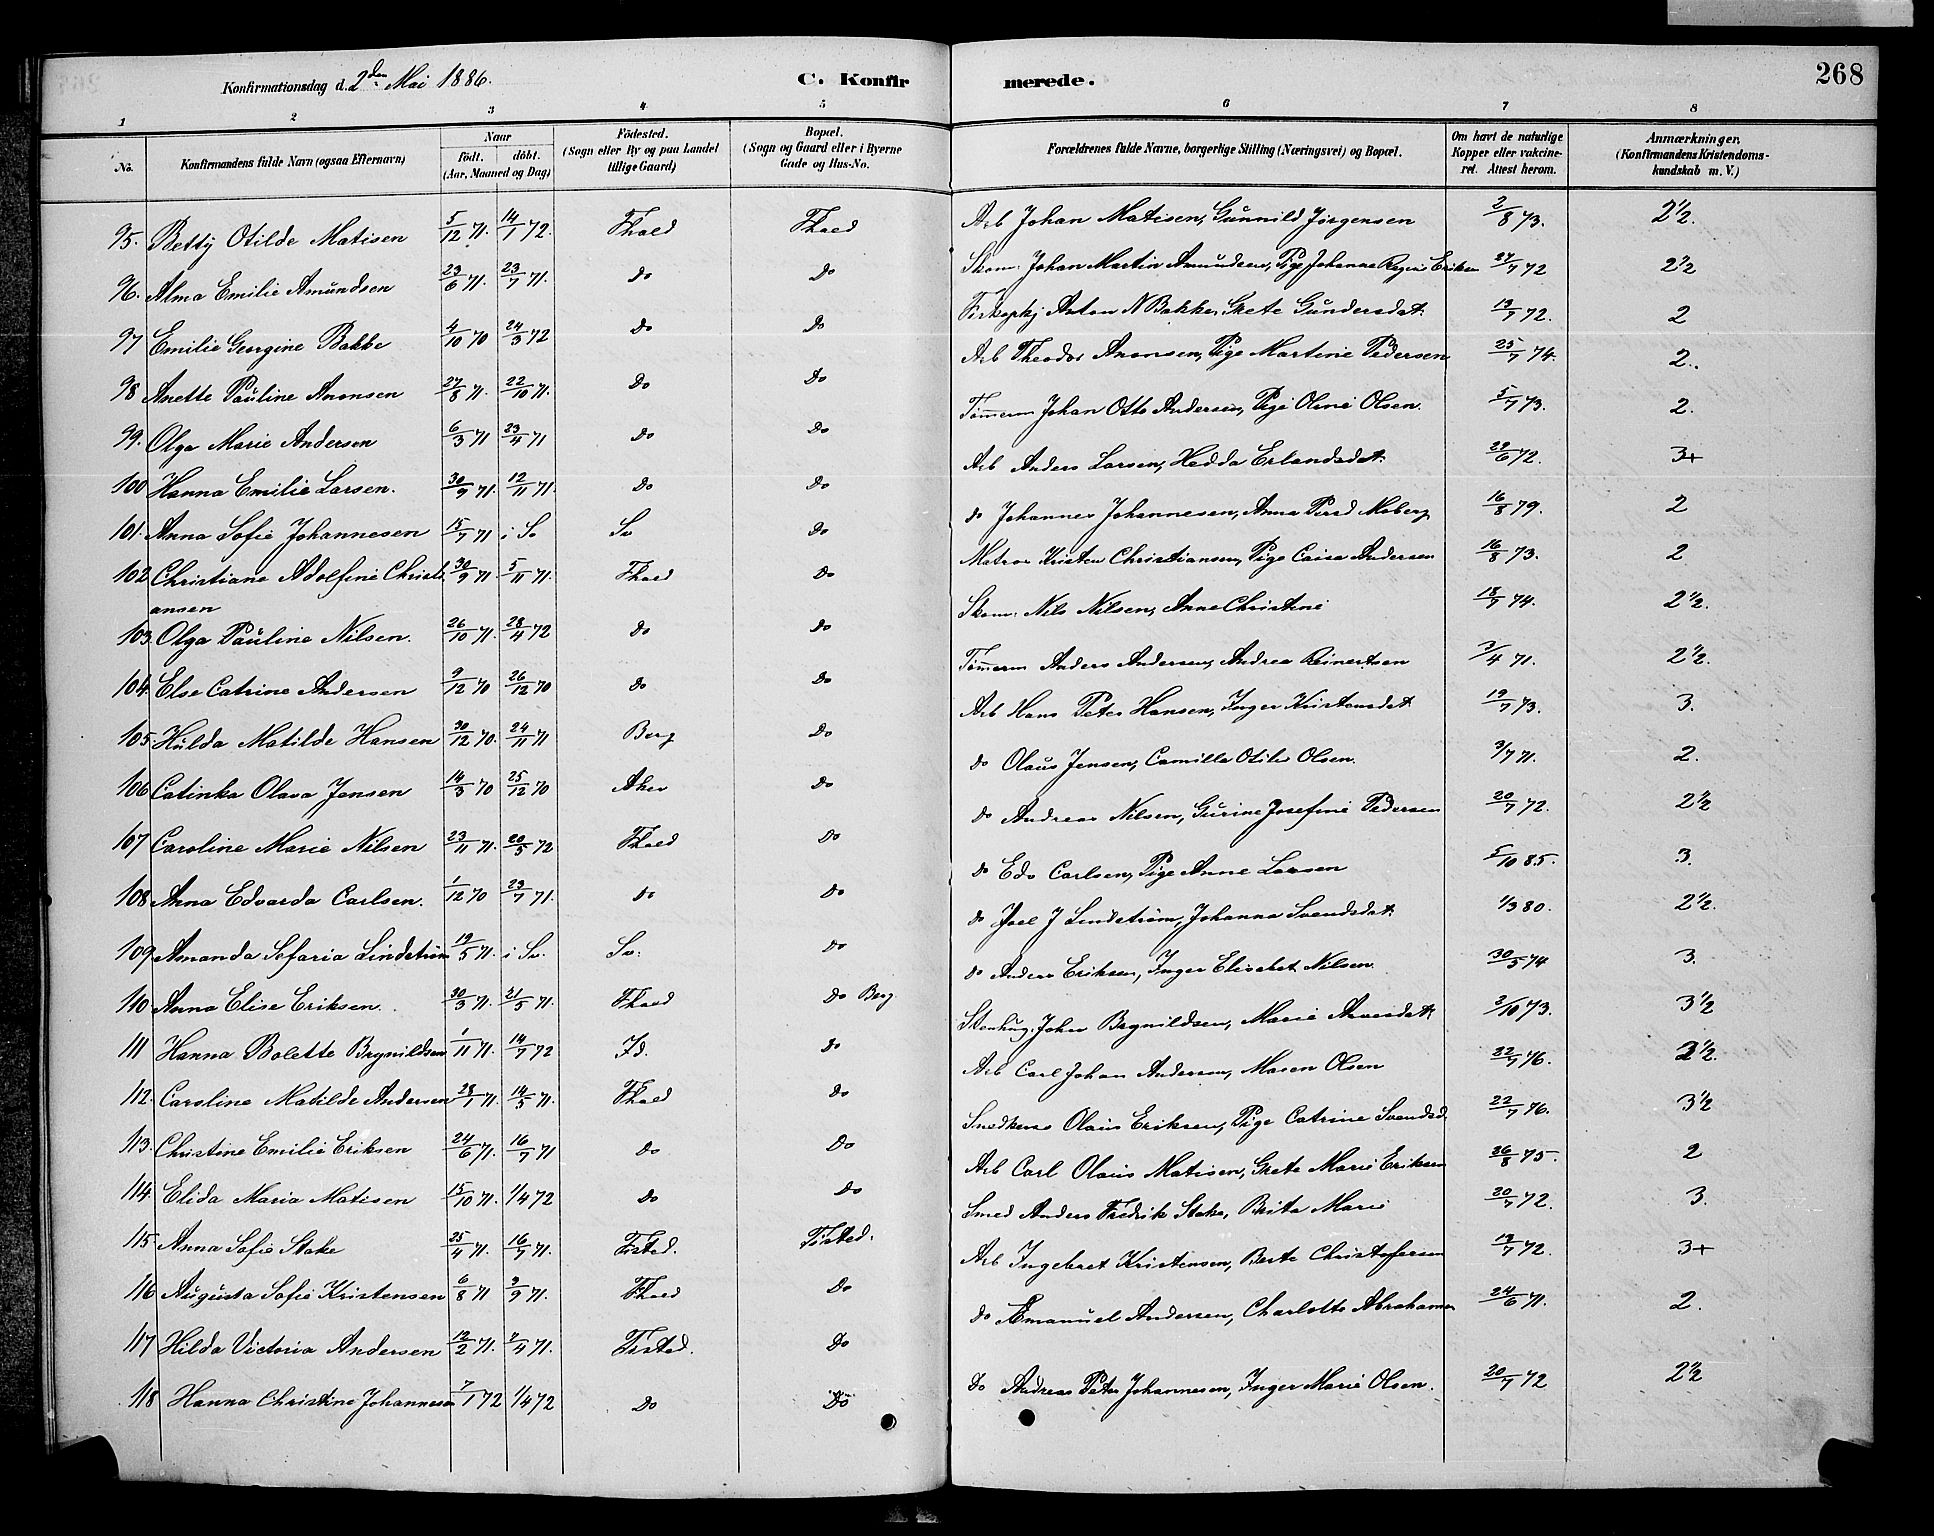 Konfirmationsdag d. 2den Mai 1886. C. Konfirmerede. 268
1 2 3 4 5 6 7 8
No. Konfirmandens fulde Navn (ogsaa Efternavn) Naar født. døbt. (Aar, Maaned og Dag) Födested. (Sogn eller By og paa Landet tillige Gaard) Bopæl. (Sogn og Gaard eller i Byerne Gade og Hus-No. Forældrenes fulde Navne, borgerlige Stilling (Næringsvei) og Bopæl. Om havt de naturlige Kopper eller vakcineret. Attest herom. Anmærkninger. (Konfirmandens Kristendomskundskab m. V.)
95. Betty Otilde Matisen 5/12 71. 14/1 72. Fhald Fhald Arb Johan Matisen, Gunnild Jørgensen 2/8 73. 2 1/2.
96. Alma Emilie Amundsen 23/6 71. 23/7 71. Do Do Skom. Johan Martin Amundsen, Pige Johanne Regine Eriksen 27/7 72 2 1/2
97 Emilie Georgine Bakke 4/10 70 24/3 72 Do Do Anton N Bakke, Grete Gundersdat. 19/7 72. 2
98 Anette Pauline Aronsen 27/8 71. 22/10 71. Do Do Arb Theodor Aronsen, Pige Martine Pedersen 25/7 74. 2.
99. Olga Marie Andersen 6/3 71 23/4 71 Do Do Tømerm Johan Otto Andersen, Pige Oline Olsen. 5/7 73. 2.
100 Hanna Emilie Larsen. 30/9 71. 12/11 71. Do Do Arb Anders Larsen, Hedda Erlandsdat. 22/6 72. 3+
101. Anna Sofie Johannesen 15/7 71 i Sv Sv Do do Johannes Johannesen, Anna Persd Moberg 16/8 79. 2
102 Christiane Adolfine Christiansen 30/9 71 5/11 71. Fhald Do Matros Kristen Christiansen, Pige Caisa Andersen 16/8 73. 2
103. Olga Pauline Nilsen. 26/10 71. 28/4 72 Do Do Skom. Nils Nilsen, Anne Christine 18/7 74. 2 1/2.
104. Else Catrine Andersen 9/12 70 26/12 70 Do Do Tømerm Anders Andersen, Andrea Reinertsen 3/4 71. 2 1/2.
105. Hulda Matilde Hansen 30/12 70. 24/11 71 Berg Do Arb Hans Peter Hansen, Inger Kristensdat 19/7 73. 3.
106 Catinka Olava Jensen 14/3 70 25/12 70 Aker Do do Olaus Jensen, Camilla Otilie Olsen. 3/7 71. 2.
107 Caroline Marie Nilsen 23/11 71. 20/5 72 Fhald Do do Andreas Nilsen, Gurine Josefine Pedersen 20/7 72. 2 1/2
108 Anna Edvarda Carlsen. 1/12 70 23/7 71. Do Do do Edv Carlsen, Pige Anne Larsen 5/10 85. 3.
109 Amanda Sofaria Lindström 19/5 71. i Sv. Sv. Do do Joel J Lindström, Johanna Svendsdat. 1/3 80. 2 1/2.
110 Anna Elise Eriksen. 30/3 71. 21/5 71. Fhald Do Berg do Anders Eriksen, Inger Elisabet Nilsen. 30/5 74 3.
111 Hanna Bolette Brynildsen 1/11 71. 14/7 72 Id. Do Stenhug. Johan Brynildsen, Marie 2/10 73. 3 1/2
112. Caroline Matilde Andersen 28/1 71. 14/5 71. Fhald Do Arb Carl Johan Andersen, Maren Olsen 22/7 76. 2 1/2.
113. Christine Emilie Eriksen 24/6 71. 16/7 71 Do Do Olaus Eriksen, Pige Catrine Svendsd. 22/7 76. 3 1/2
114. Elida Maria Matisen 15/10 71. 1/4 72 Do Do Arb Carl Olaus Matisen, Grete Marie Eriksen 26/8 75. 2
115. Anna Sofie Stake 25/4 71. 16/7 71. Tisted. Tisted. Smed Anders Fredrik Stake, Brita Marie 20/7 72. 3.
116 Augusta Sofie Kristensen 6/8 71 3/9 71. Fhald Do Arb Ingebret Kristensen, Berte Christofersen 19/7 72. 3+
117 Hilda Victoria Andersen 12/2 71. 2/4 71. Tisted. Do do Emanuel Andersen, Charlotte Abrahamsen 24/6 71. 2.
118 Hanna Christine Johannesen 7/1 72 1/4 72 Do Do do Andreas Peter Johannesen, Inger Marie Olsen. 20/7 72 2 1/2